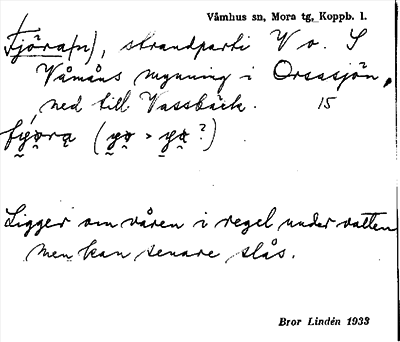 Våmhus sn, Mora tg, Koppb. l.
Fjöra(n), strandparti V o. S
Våmåns mynning i Orsasjön,
ned till Vassbäck. 15
Ligger om våren i regel under vatten
men kan senare slås.
Bror Lindén 1933